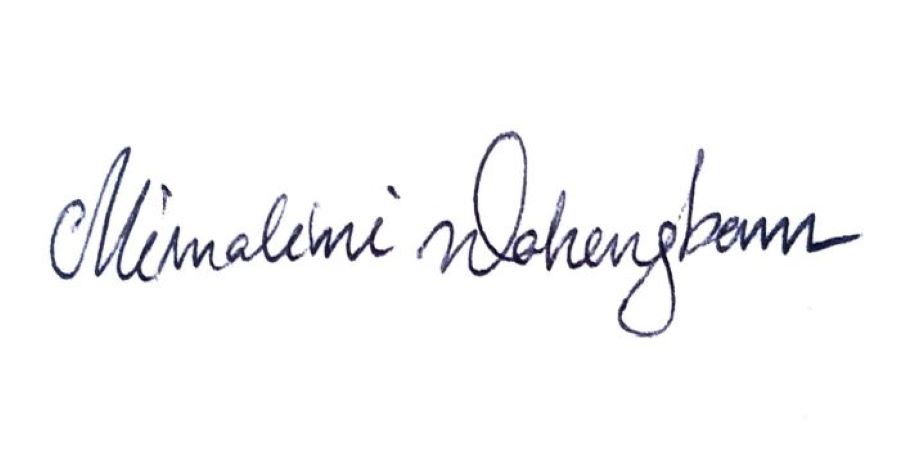 Mirnalini Wahengbam